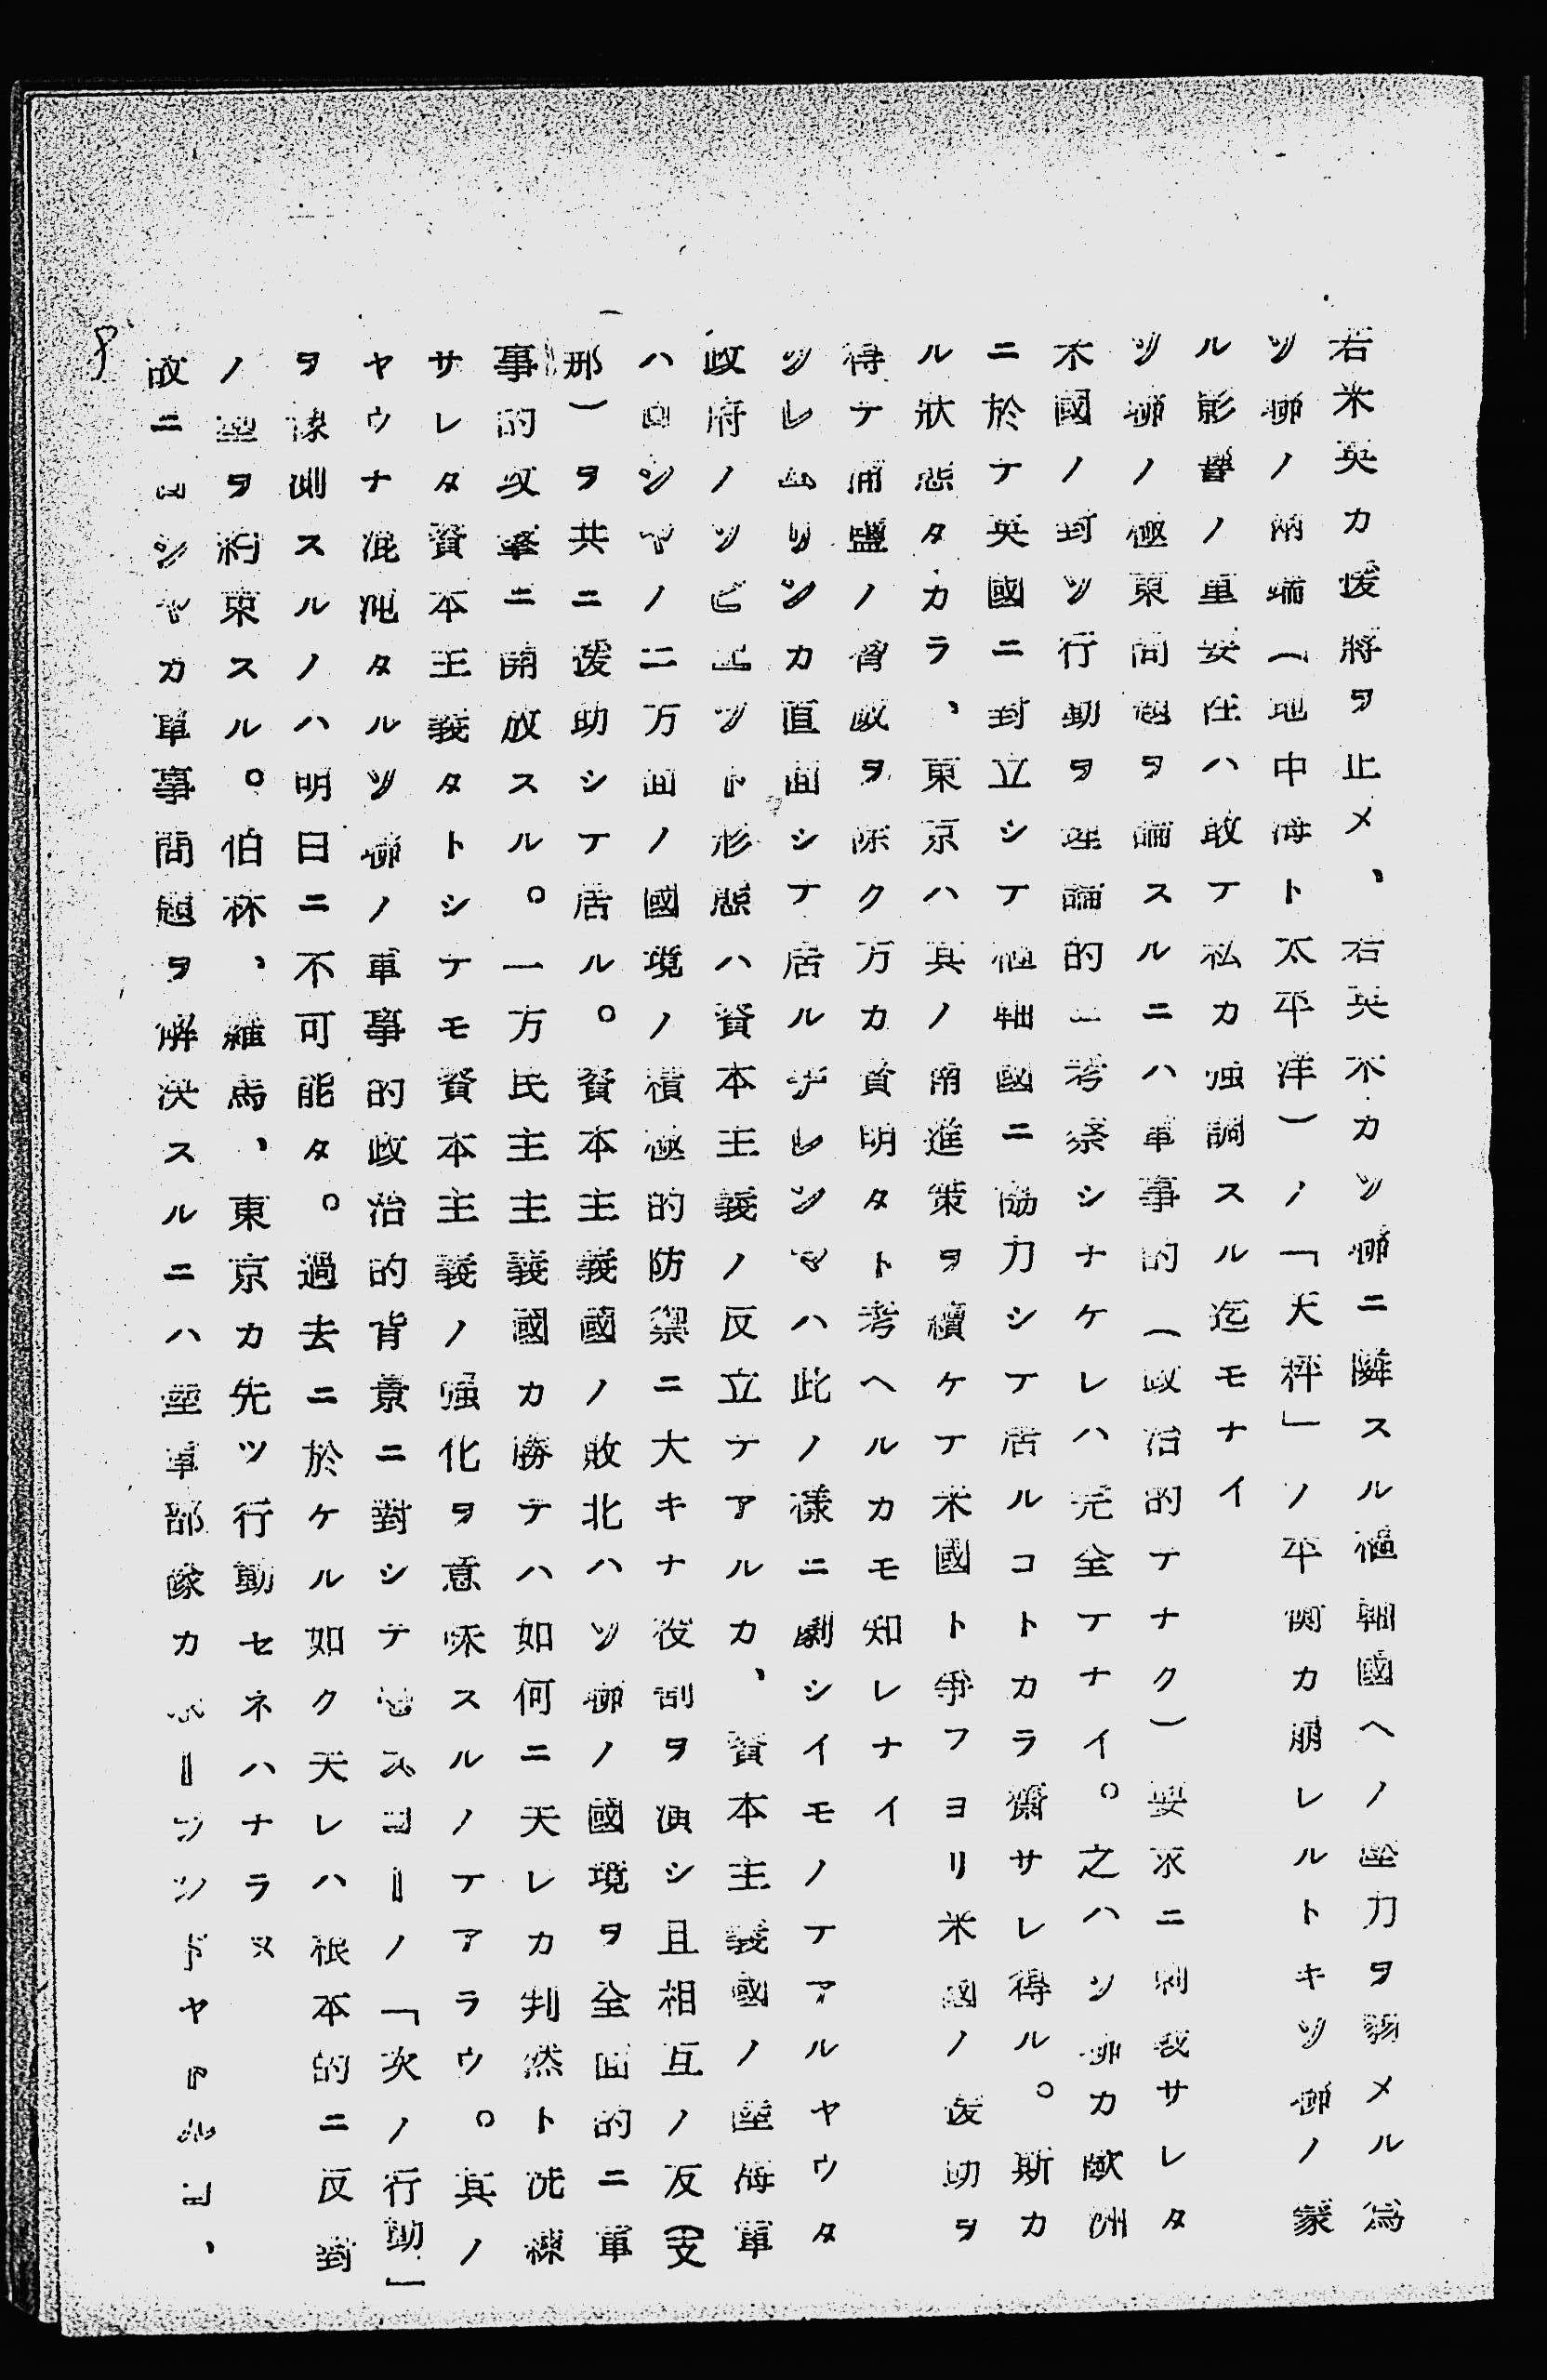 若米英カ援蔣ヲ止メ、右英米カソ聯ニ隣スル樞軸國ヘノ壓力ヲ弱メル爲
ソ聯ノ兩端(地中海ト太平洋)ノ「天秤」ノ平衡カ崩レルトキソ聯ノ蒙
ル影響ノ重要性ハ敢テ私カ强調スル迄モナイ
ソ聯ノ極東問題ヲ論スルニハ軍事的(政治的テナク)要求ニ刺戟サレタ
米國ノ對ソ行動ヲ理論的ニ考察シナケレハ完全テナイ。之ハソ聯カ歐洲
ニ於テ英國ニ對立シテ樞軸國ニ協力シテ居ルコトカラ齎サレ得ル。斯カ
ル狀態タカラ、東京ハ其ノ南進策ヲ續ケテ米國ト爭フヨリ米國ノ援助ヲ
得テ浦鹽ノ脅威ヲ除ク方カ賢明タト考ヘルカモ知レナイ
ソレムリンカ直面シテ居ルヂレンマハ此ノ樣ニ劇シイモノテアルヤウタ
政府ノソビエツト形態ハ資本主義ノ反立テアルカ、資本主義國ノ陸海軍
ハロシヤノ二方面ノ國境ノ積極的防禦ニ大キナ役割ヲ演シ且相互ノ友(支
那)ヲ共ニ援助シテ居ル。資本主義國ノ敗北ハソ聯ノ國境ヲ全面的ニ軍
事的攻擊ニ開放スル。一方民主主義國カ勝テハ如何ニ天レカ判然ト洗練
サレタ資本主義タトシテモ資本主義ノ强化ヲ意味スルノテアラウ。其ノ
ヤウナ混沌タルソ聯ノ軍事的政治的背景ニ對シテモスコーノ「次ノ行動」
ヲ豫測スルノハ明日ニ不可能タ。過去ニ於ケル如ク天レハ根本的ニ反對
ノ型ヲ約束スル。伯林、羅馬、東京カ先ツ行動セネハナラヌ
故ニロシヤカ軍事問題ヲ解決スルニハ陸軍部隊カポーランドヤトルコ、